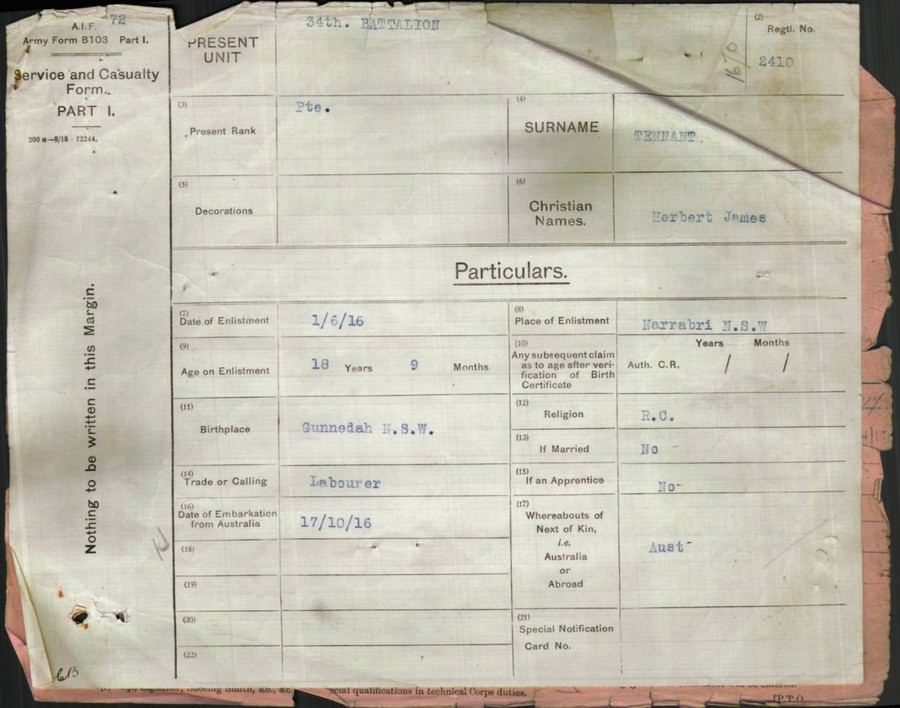 72
A.I.F.
Army Form B103 Part I.
Service and Casualty
Form.
PART I.
200 M—8/18—12244.
Nothing to be written in this Margin.
PRESENT
UNIT
34th. BATTALION
1670
(2)
Regtl. No.
2410
(3)
Present Rank
Pte.
(4)
SURNAME
TENNANT.
(5)
Decorations
(6)
Christian
Names.
Herbert James
Particulars.
(7)
Date of Enlistment
1/6/16
(8)
Place of Enlistment
Narrabri N.S.W
(9)
Age on Enlistment
18 Years 9 Months
(10)
Any subsequent claim
as to age after veri-
fication of Birth
Certificate
Years Months
Auth. C.R. / /
(11)
Birthplace
Gunnedah N.S.W.
(12)
Religion
R.C.
(13)
If Married
No -
(14)
Trade or Calling
Labourer
(15)
If an Apprentice
No-
(16)
Date of Embarkation
from Australia
17/10/16
(17)
Whereabouts of
Next of Kin,
i.e.
Australia
or
Abroad
Aust-
(18)
(19)
(20)
(21)
Special Notification
Card No.
(22)
613
Shoeing Smith, &c., &c.
qualifications in technical Corps duties.
[P.T.O.